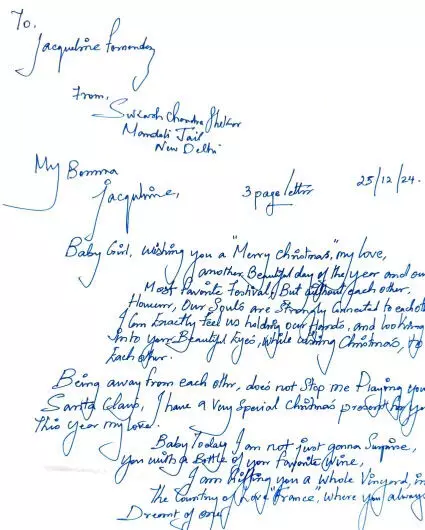 To,
Jacqueline Fernandez
From,
Sukash Chandra Shekar
Mandoli Jail
New Delhi
My Bomma
Jacqueline,
3 page letter
25/12/24.
Baby Girl, wishing you a "Merry Christmas," my love,
another Beautiful day of the year and our
Most Favorite Festival, But without each other.
However, Our Souls are Strongly Connected to each oth
I Can Exactly feel us holding our Hands, and looking
into your Beautiful Eyes, while wishing Christmas, to
Each other.
Being away from each other, does not Stop me Playing you
Santa Claus, I have a Very Special Christmas present for yo
This year my love.
Baby Today I am not just gonna Surprise,
you with a Bottle of your favorite Wine,
I am Gifting you a whole Vinyard, in
The Country of Love "France", where you always
Dreamt of